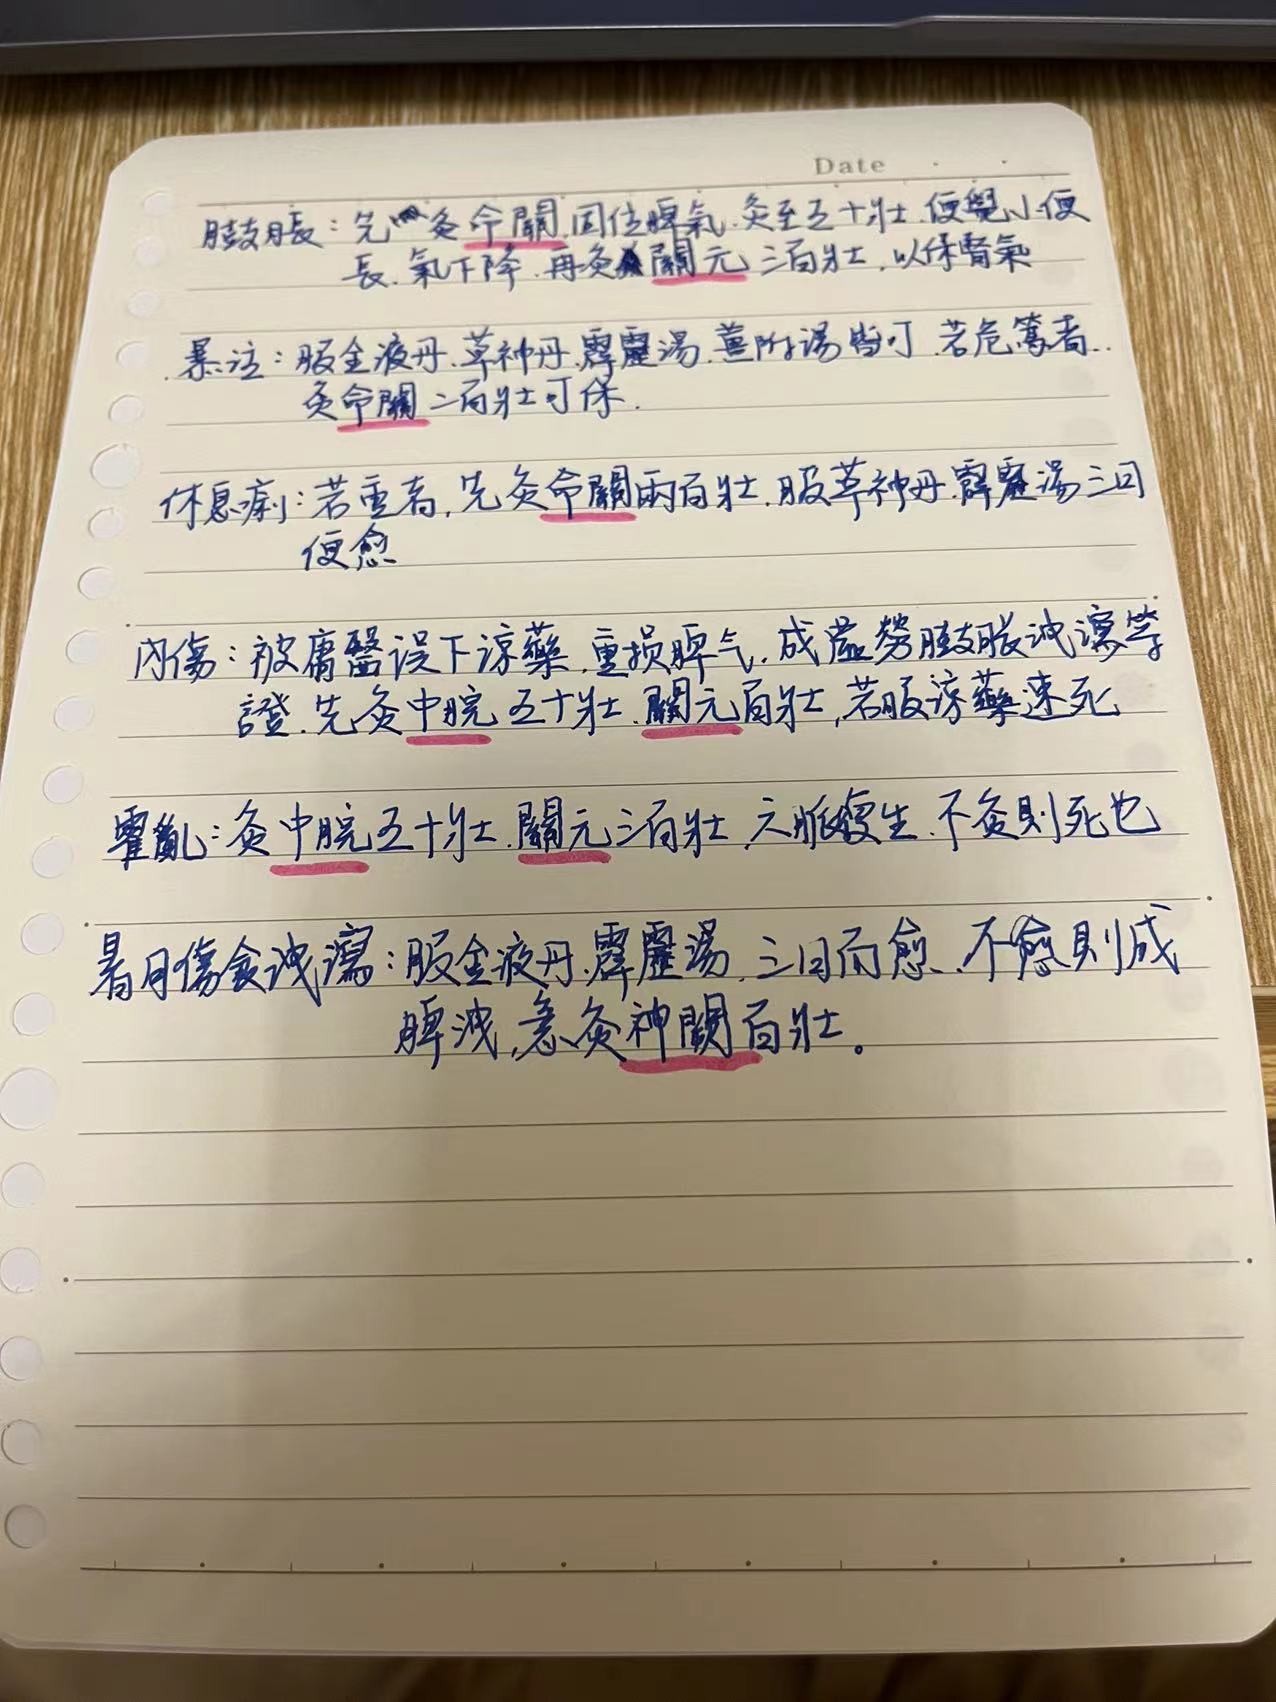 Date
臌脹：先灸命關，固住脾氣，灸至五十壯，便覺小便
長，氣下降，再灸關元三百壯，以保腎氣
暴注：服金液丹、草神丹、霹靂湯、薑附湯皆可，若危篤者，
灸命關二百壯可保.
休息痢：若重者，先灸命關兩百壯，服草神丹、霹靂湯三日
便愈
內傷：被庸醫误下涼藥，重损脾气，成虛勞臌脹洩瀉等
證，先灸中脘五十壯、關元百壯，若服涼藥速死
霍亂：灸中脘五十壯，關元三百壯，六脈復生，不灸則死也
暑月傷食洩瀉：服金液丹、霹靂湯，三日而愈，不愈則成
脾洩，急灸神闕百壯。